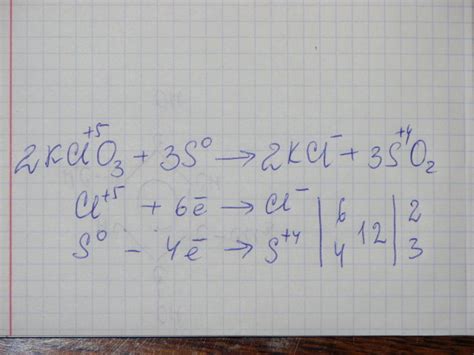 2KCl⁺⁵O₃ + 3S⁰ → 2KCl⁻ + 3S⁺⁴O₂
Cl⁺⁵ + 6ē → Cl⁻ | 6 | 2
S⁰ − 4ē → S⁺⁴ | 4 12 | 3